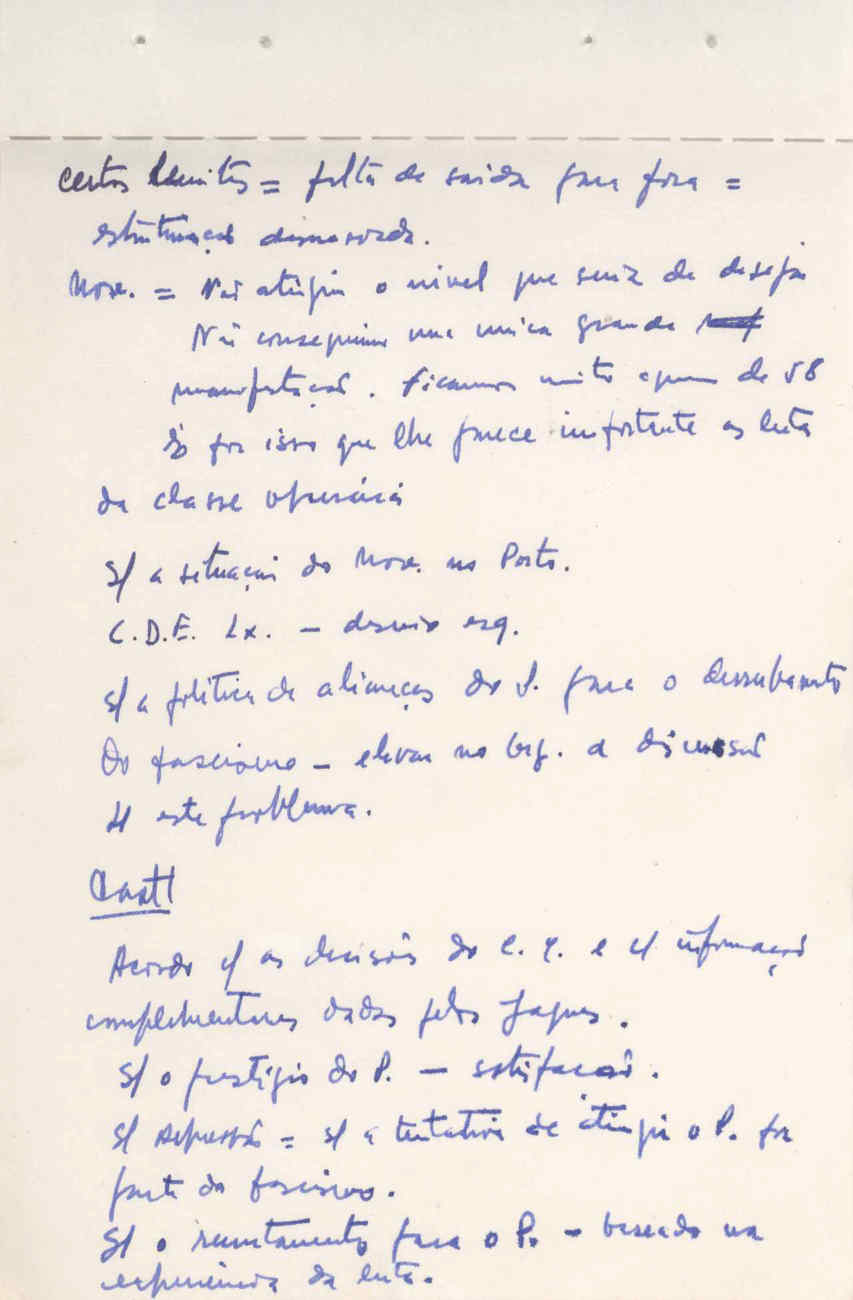 certos limites = falta de saida para fora =
estruturação demasiada.
Mov. = Não atingiu o nivel que seria de desejar
Não conseguimos uma unica grande
manifestação. Ficamos muito aquem de 58
É por isso que lhe parece importante as lutas
da classe operária
S/ a situação do Mov. no Porto.
C.D.E. Lx. – desvio esq.
S/ a politica de alianças do P. para o derrubamento
do fascismo – elevar no Org. a discussão
s/ este problema.
Acordo c/ as decisões do C. C. e c/ informações
complementares dadas pelo Jaques.
S/ o prestigio do P. – satisfação.
S/ repressão = s/ a tentativa de atingir o P. por
parte do fascismo.
S/ o recrutamento para o P. – baseado na
experiência da luta.